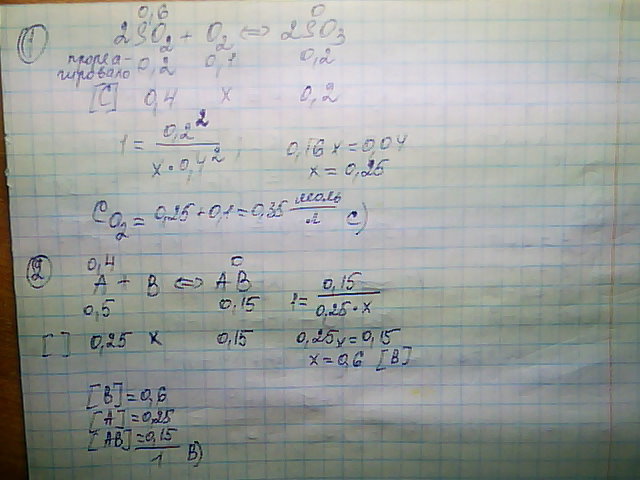 ① 0,6 0
2SO₂ + O₂ <=> 2SO₃
прореа-
гировало 0,2 0,1 0,2
[C] 0,4 x 0,2
1 = 0,2² / x · 0,4² ; 0,16 x = 0,04
x = 0,25
C O₂ = 0,25 + 0,1 = 0,35 моль/л c)
② 0,4 0
A + B <=> AB 1 = 0,15 / 0,25 · x
0,5 0,15
[ ] 0,25 x 0,15 0,25x = 0,15
x = 0,6 [B]
[B] = 0,6
[A] = 0,25
[AB] = 0,15 / 1 B)